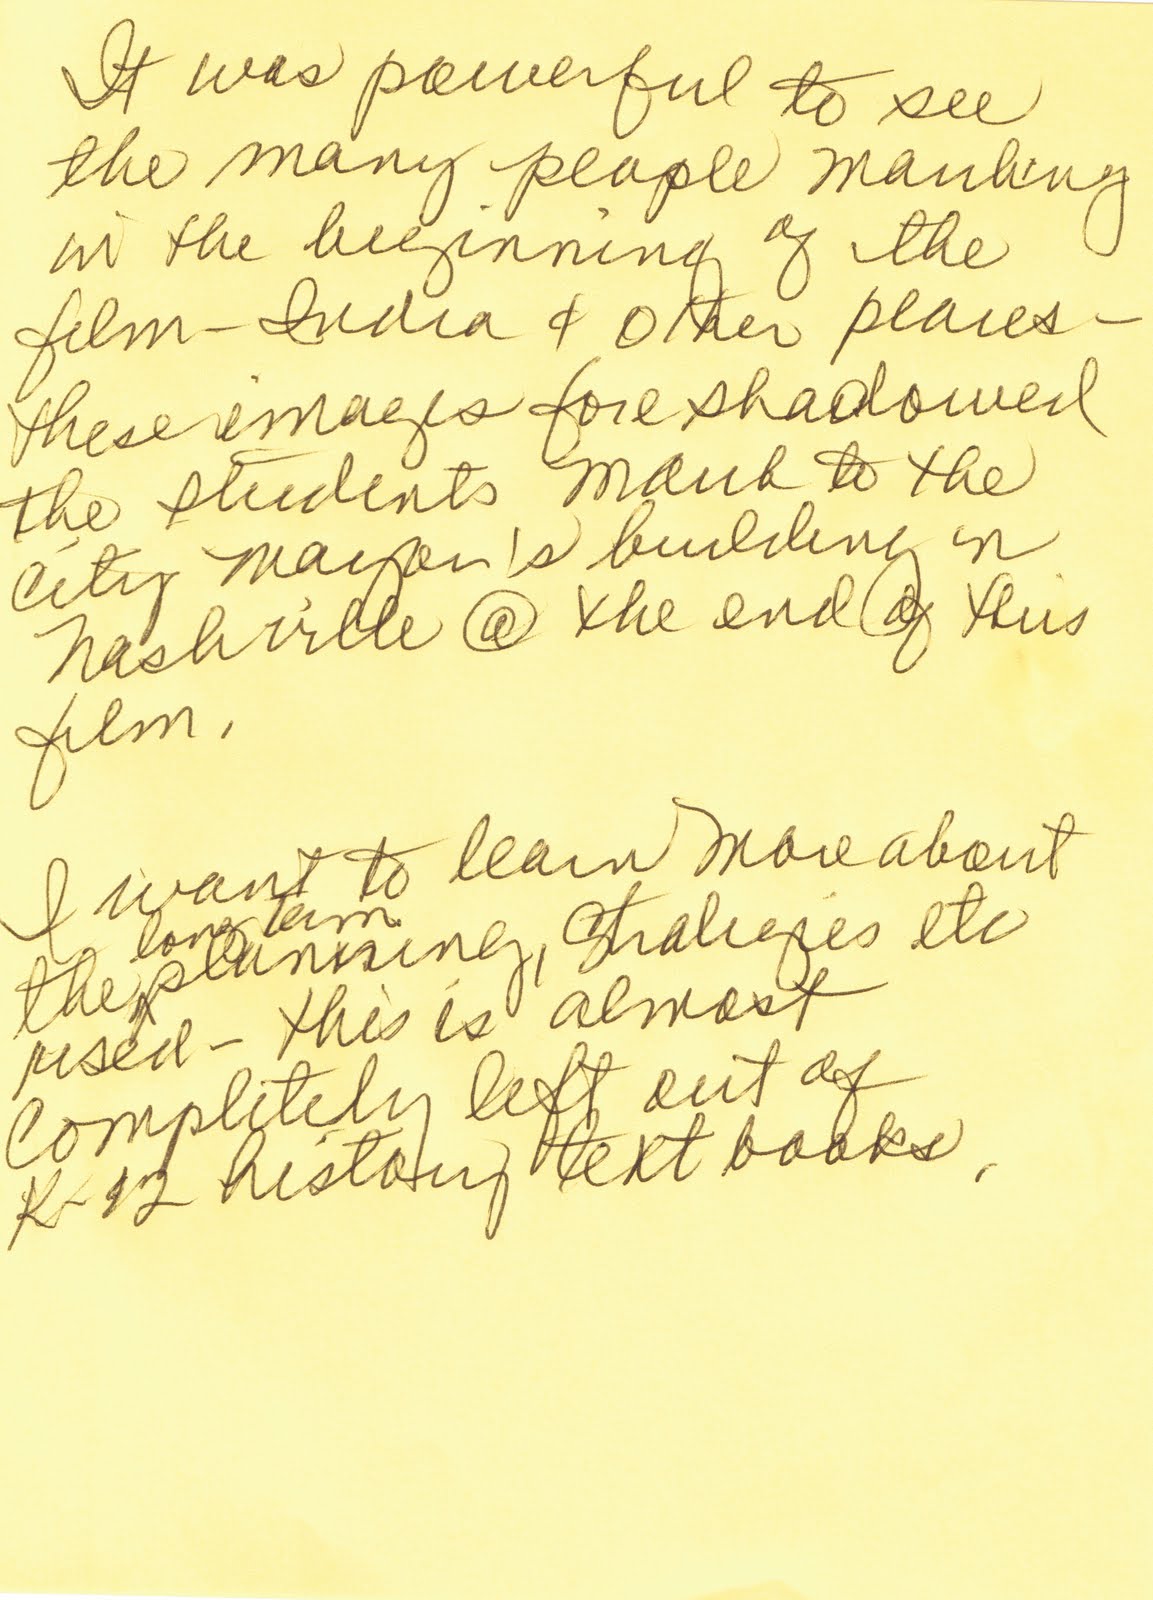 It was powerful to see
the many people marching
in the beginning of the
film – India & other places –
these images foreshadowed
the students march to the
city mayor's building in
Nashville @ the end of this
film.
I want to learn more about
the long term planning, strategies etc
used – this is almost
completely left out of
K-12 history text books.